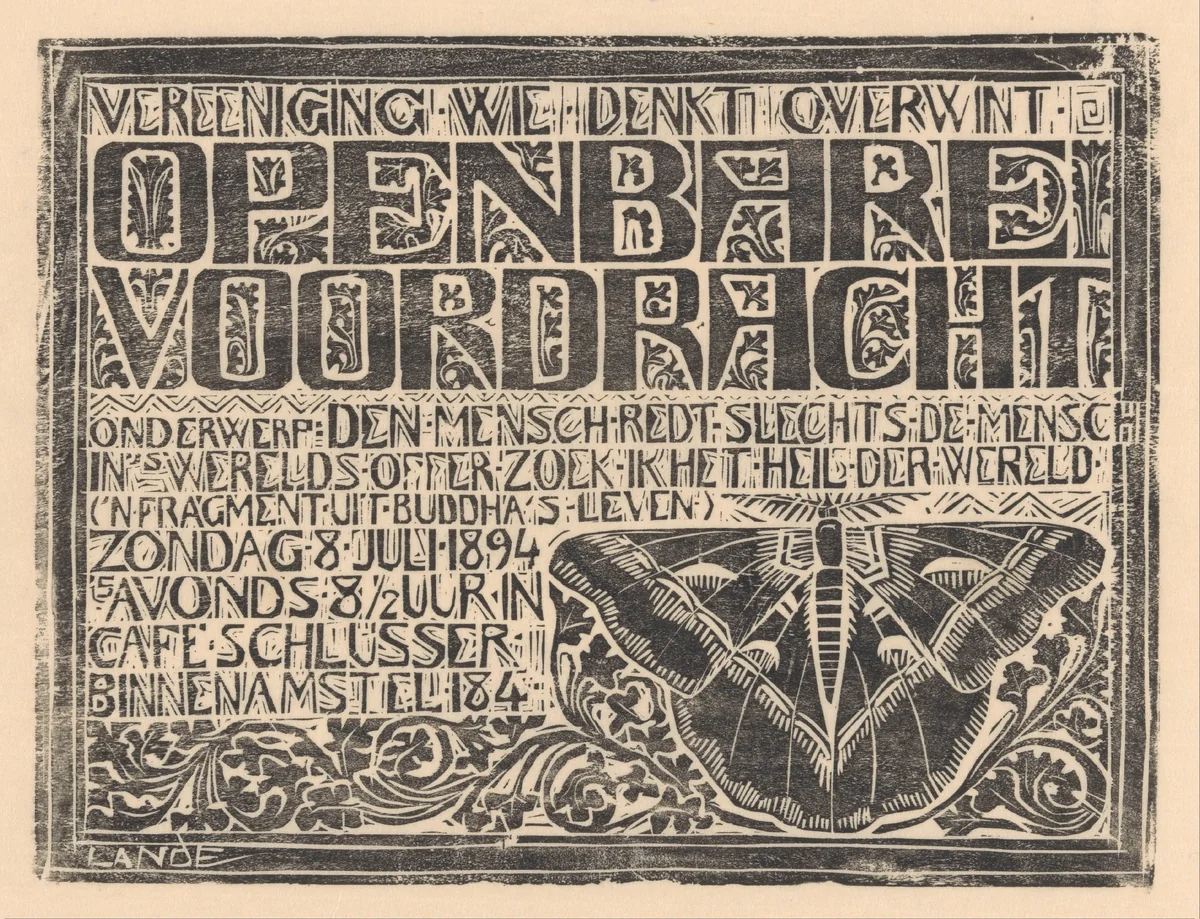 VEREENIGING·WIE·DENKT·OVERWINT·
OPENBARE
VOORDRACHT
ONDERWERP:DEN·MENSCH·REDT·SLECHTS·DE·MENSCH
IN'S·WERELDS·OFFER·ZOEK·IK·HET·HEIL·DER·WERELD·
('N·FRAGMENT·UIT·BUDDHA'S·LEVEN·)
ZONDAG·8·JULI·1894
'S AVONDS·8 1/2 UUR·IN
CAFE·SCHLÜSSER·
BINNENAMSTEL·184·
LANDÉ